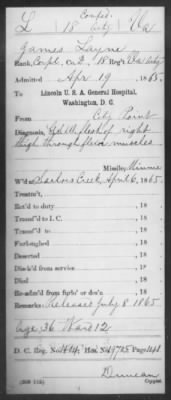 Confed.
L 18 Arty Va
James Layne
Rank, Corpl. Co. 18 Reg't Va Arty
Admitted Apr 19, 1865.
To LINCOLN U. S. A. GENERAL HOSPITAL,
WASHINGTON, D. C.
From City Point
Diagnosis, flesh of right
thigh through flexor muscles
Missile, Minnie
W'd at Sailors Creek, April 6, 1865.
Treatm't,
Ret'd to duty , 18
Transf'd to I. C. , 18
Transf'd to , 18
Furloughed , 18
Deserted , 18
Disch'd from service , 18
Died , 18
Re-adm'd from furlo' or des'n , 18
Remarks: Released July 8 1865
age 36 Ward 12
D. C. Reg. No. Hos. No. Page
Duncan
Copyist.